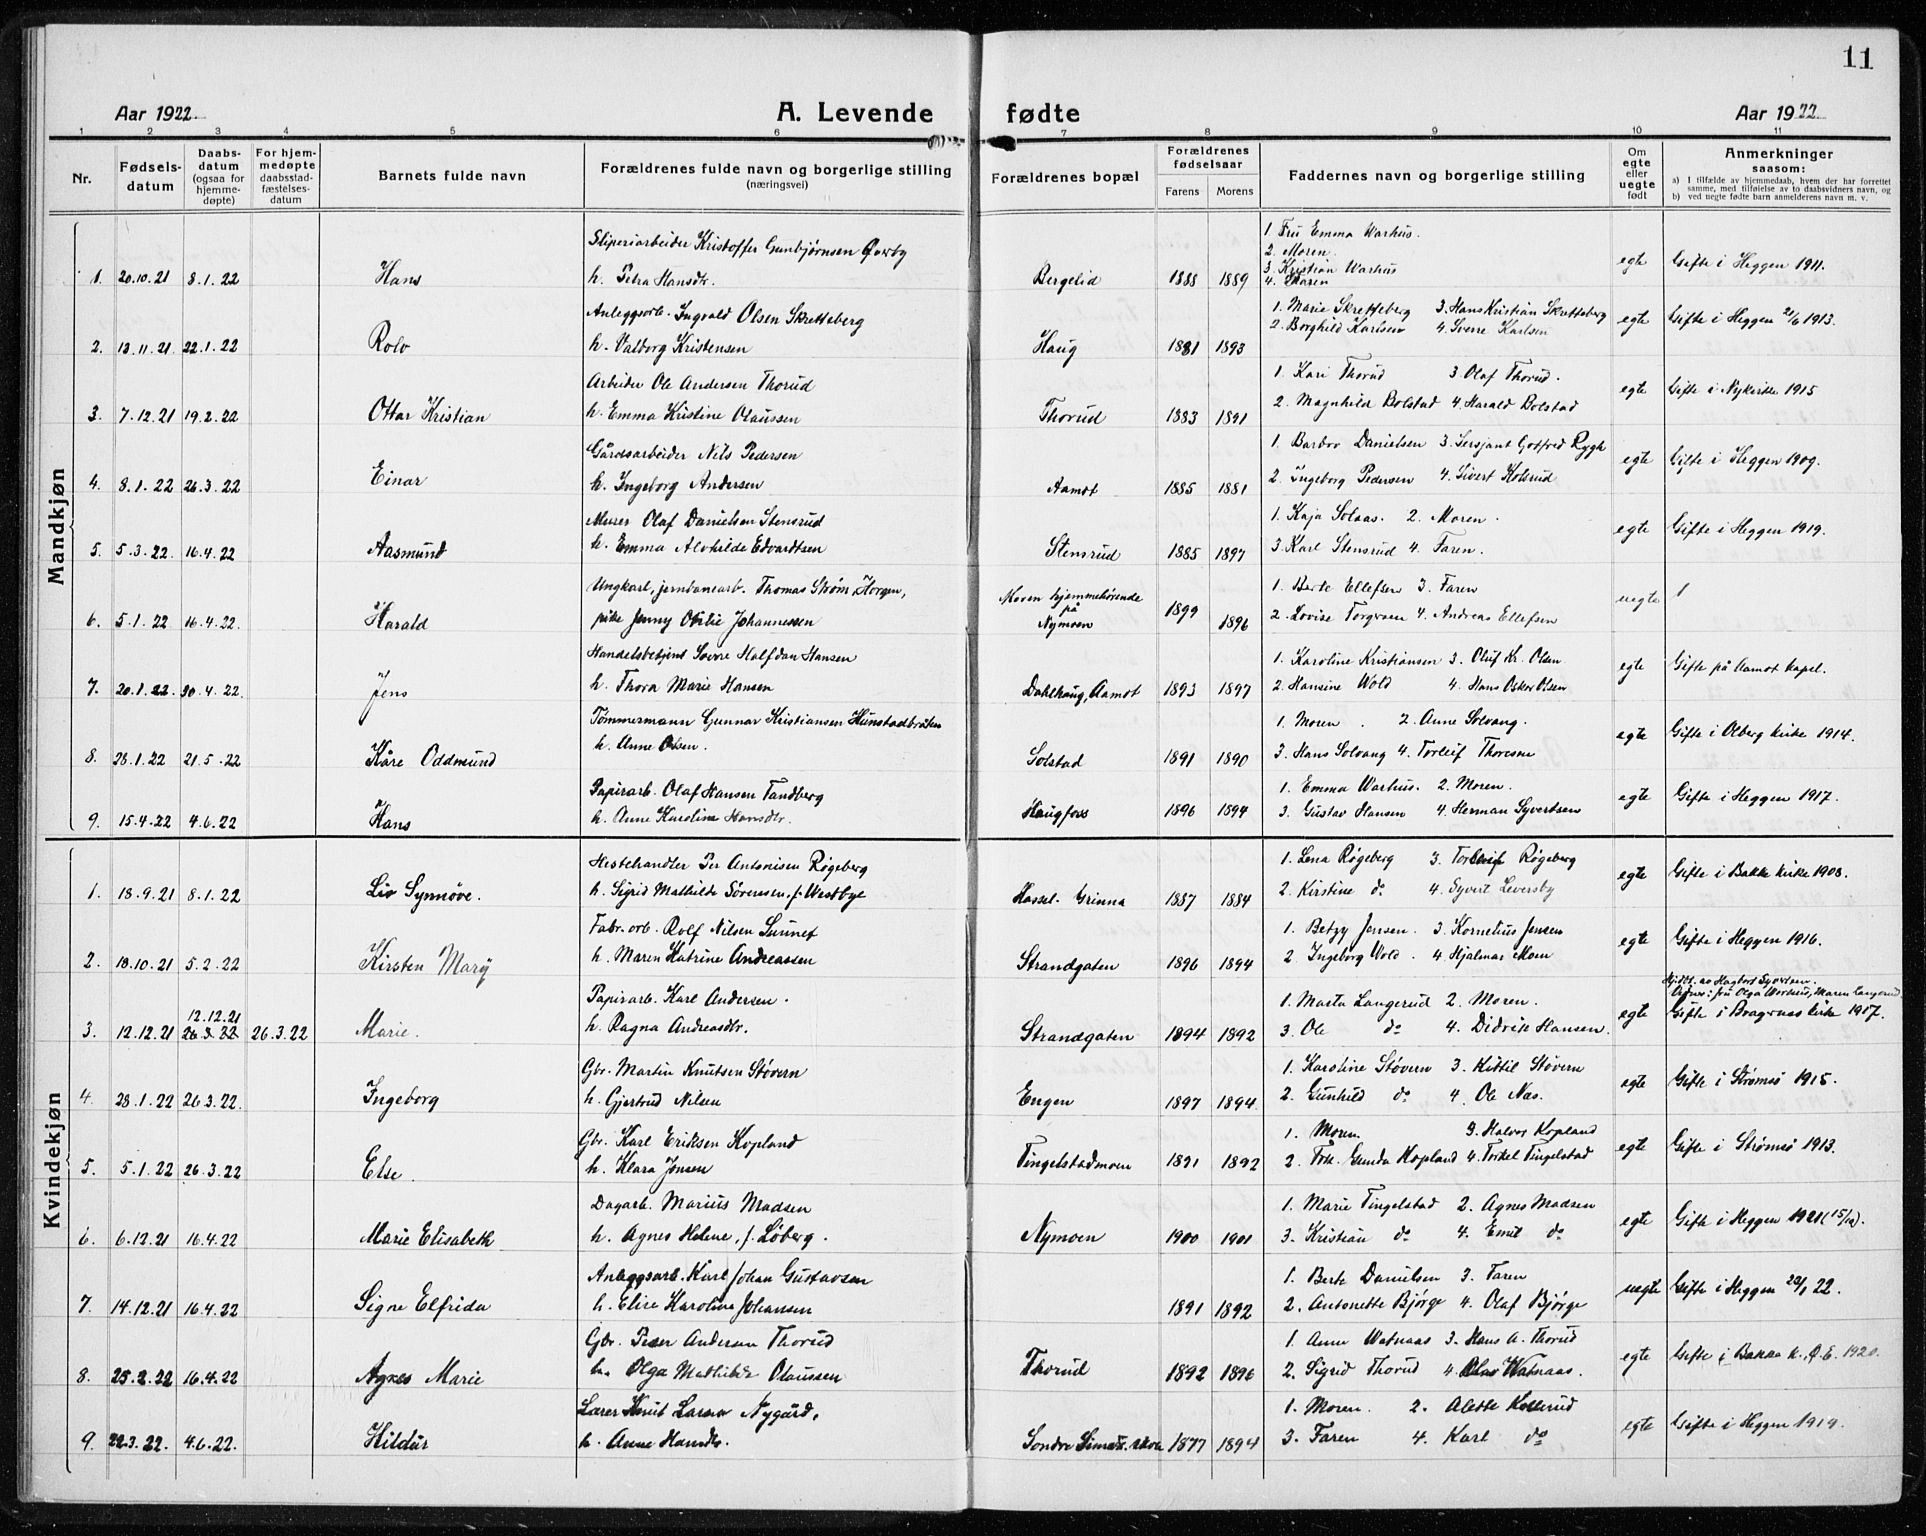 11
Aar 1922.
A. Levende fødte
Aar 1922.
1 2 3 4 5 6 7 8 9 10 11
Nr.
Fødsels-datum
Daabs-datum (ogsaa for hjemme-døpte)
For hjem-medøpte daabsstad-fæstelses-datum
Barnets fulde navn
Forældrenes fulde navn og borgerlige stilling (næringsvei)
Forældrenes bopæl
Forældrenes fødselsaar
Farens Morens
Faddernes navn og borgerlige stilling
Om egte eller uegte født
Anmerkninger saasom:
a) I tilfælde av hjemmedaab, hvem der har forrettet samme, med tilføielse av to daabsvidners navn, og
b) ved uegte fødte barn anmelderens navn m. v.
Mandkjøn
Sliperiarbeider Kristoffer Gunbjørnsen Øverby
1. Fru Emma Warhus.
2. Moren.
3. Kristian Warhus
1. 20.10.21 8.1.22 Hans h. Petra Hansdtr. Bergelid 1888 1889 4. Faren egte Gifte i Heggen 1911.
Anleggsarb. Ingvald Olsen Skretteberg 1. Marie Skretteberg 3. Hans Kristian Skretteberg
2. 13.11.21 22.1.22 Rolv h. Valborg Kristensen Haug 1881 1893 2. Borghild Karlsen 4. Sverre Karlsen egte Gifte i Heggen 21/6 1913.
Arbeider Ole Andersen Thorud 1. Kari Thorud 3. Olaf Thorud.
3. 7.12.21 19.2.22 Ottar Kristian h. Emma Kristine Olaussen Thorud 1883 1891 2. Magnhild Bolstad 4. Harald Bolstad egte Gifte i Nykirke 1915
Gårdsarbeider Nils Pedersen 1. Barbro Danielsen 3. Sersjant Gotfred Rygh
4. 8.1.22 26.3.22 Einar h. Ingeborg Andersen Aamot 1885 1881 2. Ingeborg Pedersen 4. Sivert Kolsrud egte Gifte i Heggen 1909.
Murer Olaf Danielsen Stensrud 1. Kaja Solaas. 2. Moren.
5. 5.3.22 16.4.22 Aasmund h. Emma Alvhilde Edvardtsen Stensrud 1885 1897 3. Karl Stensrud 4. Faren. egte Gifte i Heggen 1919.
Ungkarl, jernbanearb. Thomas Strøm Horgen, Moren hjemmehørende på 1. Berte Ellefsen 3. Faren
6. 5.1.22 16.4.22. Harald pike Jenny Otilie Johannessen Nymoen 1899 1896 2. Lovise Torgersen 4. Andreas Ellefsen uegte
Handelsbetjent Sverre Halfdan Hansen 1. Karoline Kristiansen 3. Oluf Kr. Olsen
7. 20.1.22 30.4.22 Jens h. Thora Marie Hansen Dahlhaug, Aamot 1893 1897 2. Hansine Wold 4. Hans Oskar Olsen egte Gifte på Aamot kapel.
Tømmermann Gunnar Kristiansen Hunstadbråten 1. Moren. 2. Anne Solvang.
8. 28.1.22 21.5.22 Kåre Oddmund h. Anne Olsen. Solstad 1891 1890 3. Hans Solvang 4. Torleif Thoresen egte Gifte i Olberg kirke 1914.
Papirarb. Olaf Hansen Tandberg 1. Emma Warhus. 2. Moren.
9. 15.4.22 4.6.22 Hans h. Anne Karoline Hansdtr. Haugfoss 1896 1894 3. Gustav Hansen 4. Herman Syvertsen egte Gifte i Heggen 1917.
Kvindekjøn
Hestehandler Per Antonisen Røgeberg 1. Lena Røgeberg 3. Torleif Røgeberg
1. 18.9.21 8.1.22 Liv Synnøve. h. Sigrid Mathilde Sørensen, f. Westbye Hassel. Grinna 1887 1884 2. Kirstine do 4. Syvert Leversby egte Gifte i Bakke kirke 1908.
Fabr. arb. Rolf Nilsen Sunnef 1. Betzy Jensen. 3. Kornelius Jensen
2. 18.10.21 5.2.22 Kirsten Mary h. Maren Katrine Andreassen Strandgaten 1896 1894 2. Ingeborg Wold. 4. Hjalmar Moen egte Gifte i Heggen 1916.
Hjdbt. av Hagbart Syvertsen.
Papirarb. Karl Andersen. 1. Marta Langerud 2. Moren.
12.12.21
3. 12.12.21 26.3.22 26.3.22 Marie. h. Ragna Andreasdtr. Strandgaten 1894 1892 3. Ole do 4. Didrik Hansen. egte Gifte i Bragernes kirke 1917.
Gbr. Martin Knutsen Støvern 1. Karoline Støvern 3. Kittil Støvern
4. 28.1.22 26.3.22. Ingeborg h. Gjertrud Nilsen Engen 1897 1894 2. Gunhild do 4. Ole Næs. egte Gifte i Strømsø 1915.
Gbr. Karl Eriksen Kopland 1. Moren. 3. Halvor Kopland
5. 5.1.22 26.3.22 Else. h. Klara Jensen Tingelstadmoen 1891 1892 2. Frk. Gunda Kopland 4. Torkel Tingelstad egte Gifte i Strømsø 1913.
Dagarb. Marius Madsen 1. Marie Tingelstad 2. Agnes Madsen
6. 6.12.21 16.4.22 Marie Elisabeth h. Agnes Helene, f. Løberg. Nymoen 1900 1901 3. Kristian do 4. Emil do egte Gifte i Heggen 1921 (15/10).
Anleggsarb. Karl Johan Gustavsen 1. Berte Danielsen 3. Faren
7. 14.12.21 16.4.22 Signe Elfrida h. Elise Karoline Johansen 1891 1892 2. Antonette Bjørge 4. Olaf Bjørge uegte Gifte i Heggen 28/1 22.
Gbr. Peder Andersen Thorud 1. Anne Watnaas 3. Hans A. Thorud
8. 25.2.22 16.4.22 Agnes Marie h. Olga Mathilde Olaussen Thorud 1892 1896 2. Sigrid Thorud 4. Olav Watnaas. egte Gifte i Bakke k. 1920.
Lærer Knut Larsen Nygård, 1. Moren. 2. Alette Kollerud
9. 22.3.22. 4.6.22. Hildur h. Anne Hansdtr. Sondre Simos. skole 1877 1894 3. Faren 4. Karl do egte Gifte i Heggen 1919.